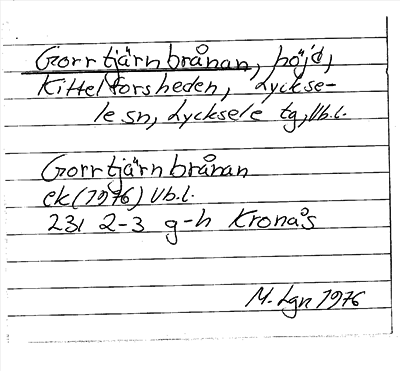 Gorrtjärnbrånan, höjd,
Kittelforsheden, Lycksе-
le sn, Lycksele tg, Vb.l.
Gorrtjärnbrånan
ek (1976) Vb.l.
231 2-3 g-h Kronås
M. Lgn 1976